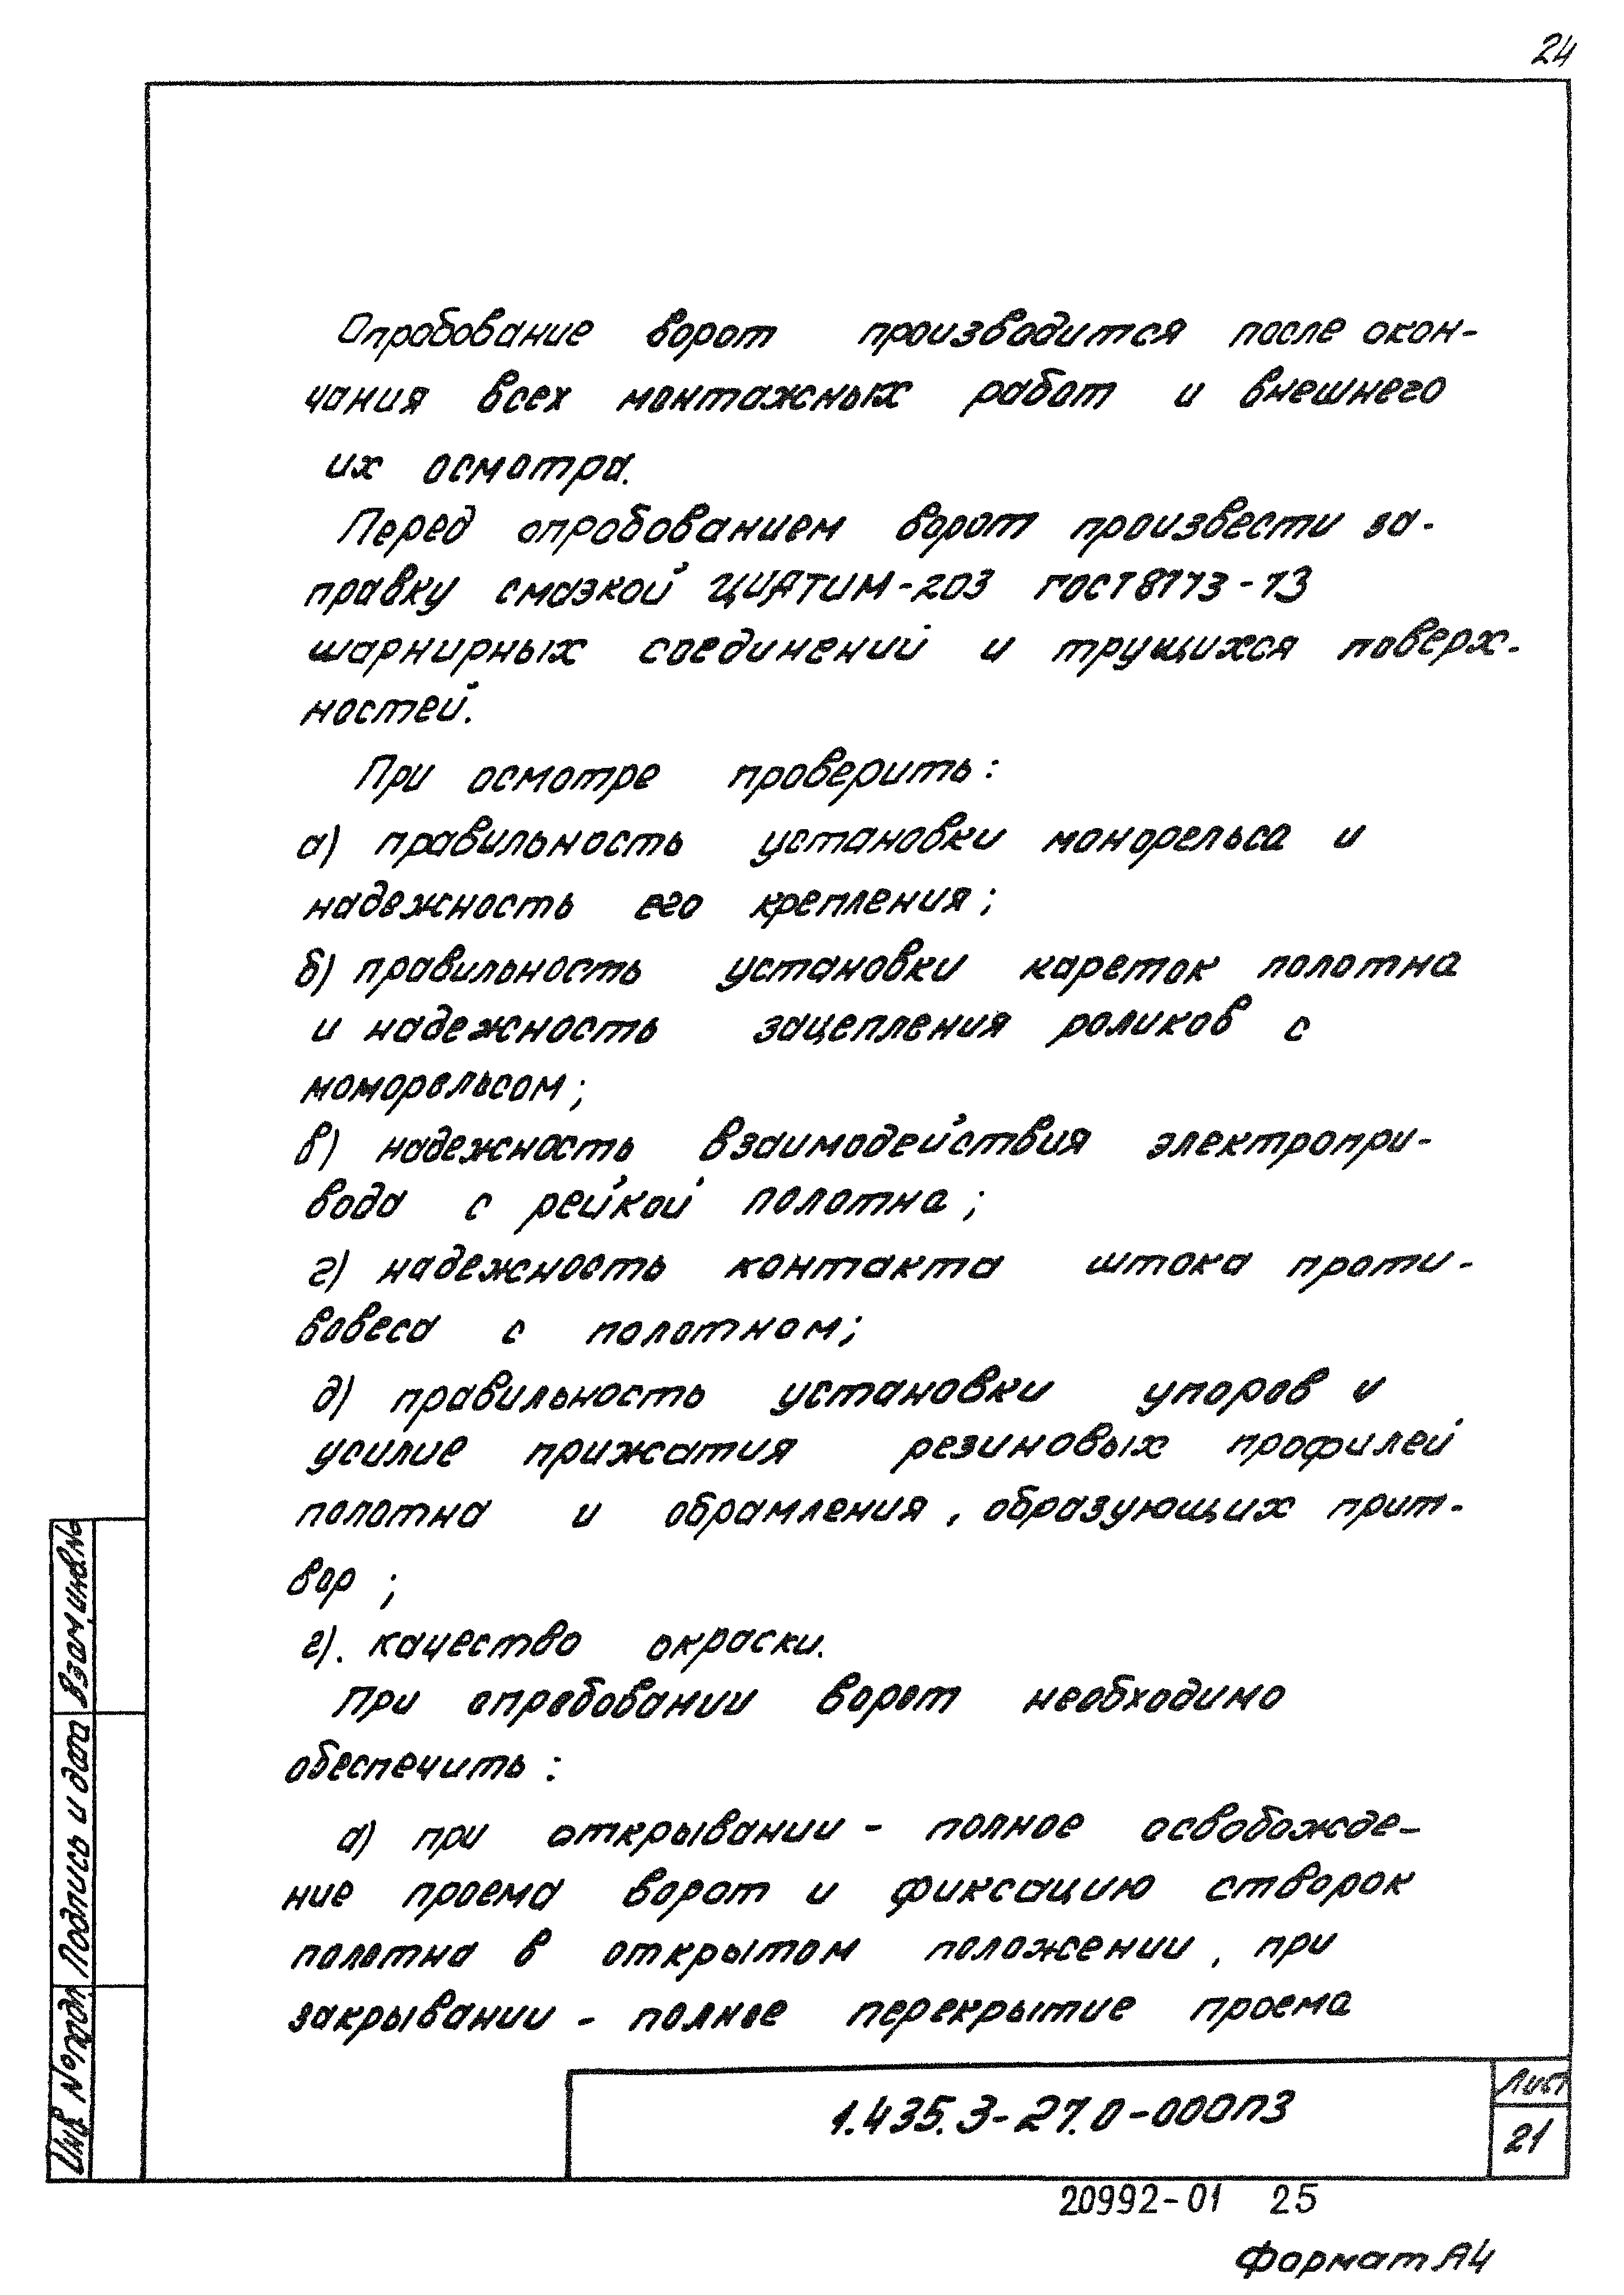 24
Опробование ворот производится после окон-
чания всех монтажных работ и внешнего
их осмотра.
Перед опробованием ворот произвести за-
правку смазкой ЦИАТИМ-203 ГОСТ 8773-73
шарнирных соединений и трущихся поверх-
ностей.
При осмотре проверить:
а) правильность установки монорельса и
надежность его крепления;
б) правильность установки кареток полотна
и надежность зацепления роликов с
моморельсом;
в) надежность взаимодействия электропри-
вода с рейкой полотна;
г) надежность контакта штока проти-
вовеса с полотном;
д) правильность установки упоров и
усилие прижатия резиновых профилей
полотна и обрамления, образующих прит-
вор;
г). качество окраски.
При опробовании ворот необходимо
обеспечить:
а) при открывании - полное освобожде-
ние проема ворот и фиксацию створок
полотна в открытом положении, при
закрывании - полное перекрытие проема
Взам инв.№
Подпись и дата
Инв № подл
1.435.3-27.0-000ПЗ
Лист
21
20992-01 25
Формат А4